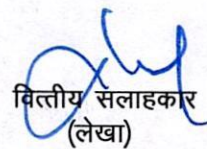 वित्तीय सलाहकार
(लेखा)